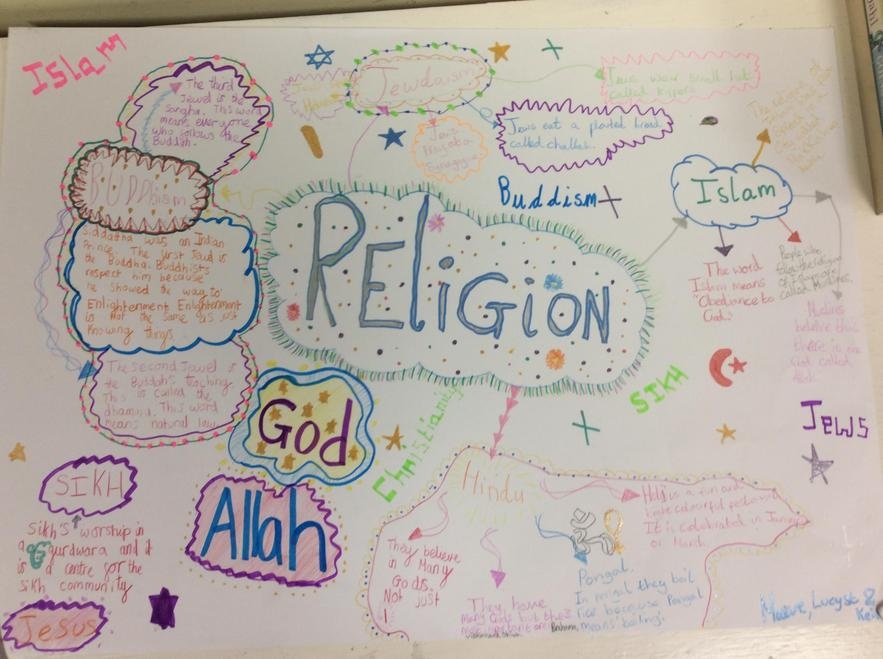 Islam
The third
Jewel is the
Sangha. This word
means everyone
who follows the
Buddah.
Buddism
Siddatha was an Indian
Prince. The first Jewel is
the Buddha. Buddhists
respect him because
he showed the way to
Enlightenment Enlightenment
is not the same as just
knowing things
The second Jewel is
the Buddah's teaching
This is called the
dhamma. This word
means natural law
SIKH
Sikh's worship in
a Gurdwara and it
is a centre for the
Sikh community
Jesus
Jewdaism
Jews
Synagogue
Jews wear small hats
called kippers
Jews eat a plaited bread
called challah.
Buddism
RELIGION
God
Allah
Christianity
SIKH
Islam
The word
Islam means
"Obedience to
God."
People who
follow the religion
called Muslimes.
believe that
there is one
God called
Allah.
Jews
Hindu
They believe
in Many
Gods.
Not just
1!
They have
many Gods but the 3
most important are Brahma,
Pongal.
they boil
rice because Pongal
means 'boiling'.
Holi is a fun and
colourful festival
It is celebrated in
or March.
Maeve, Lucy